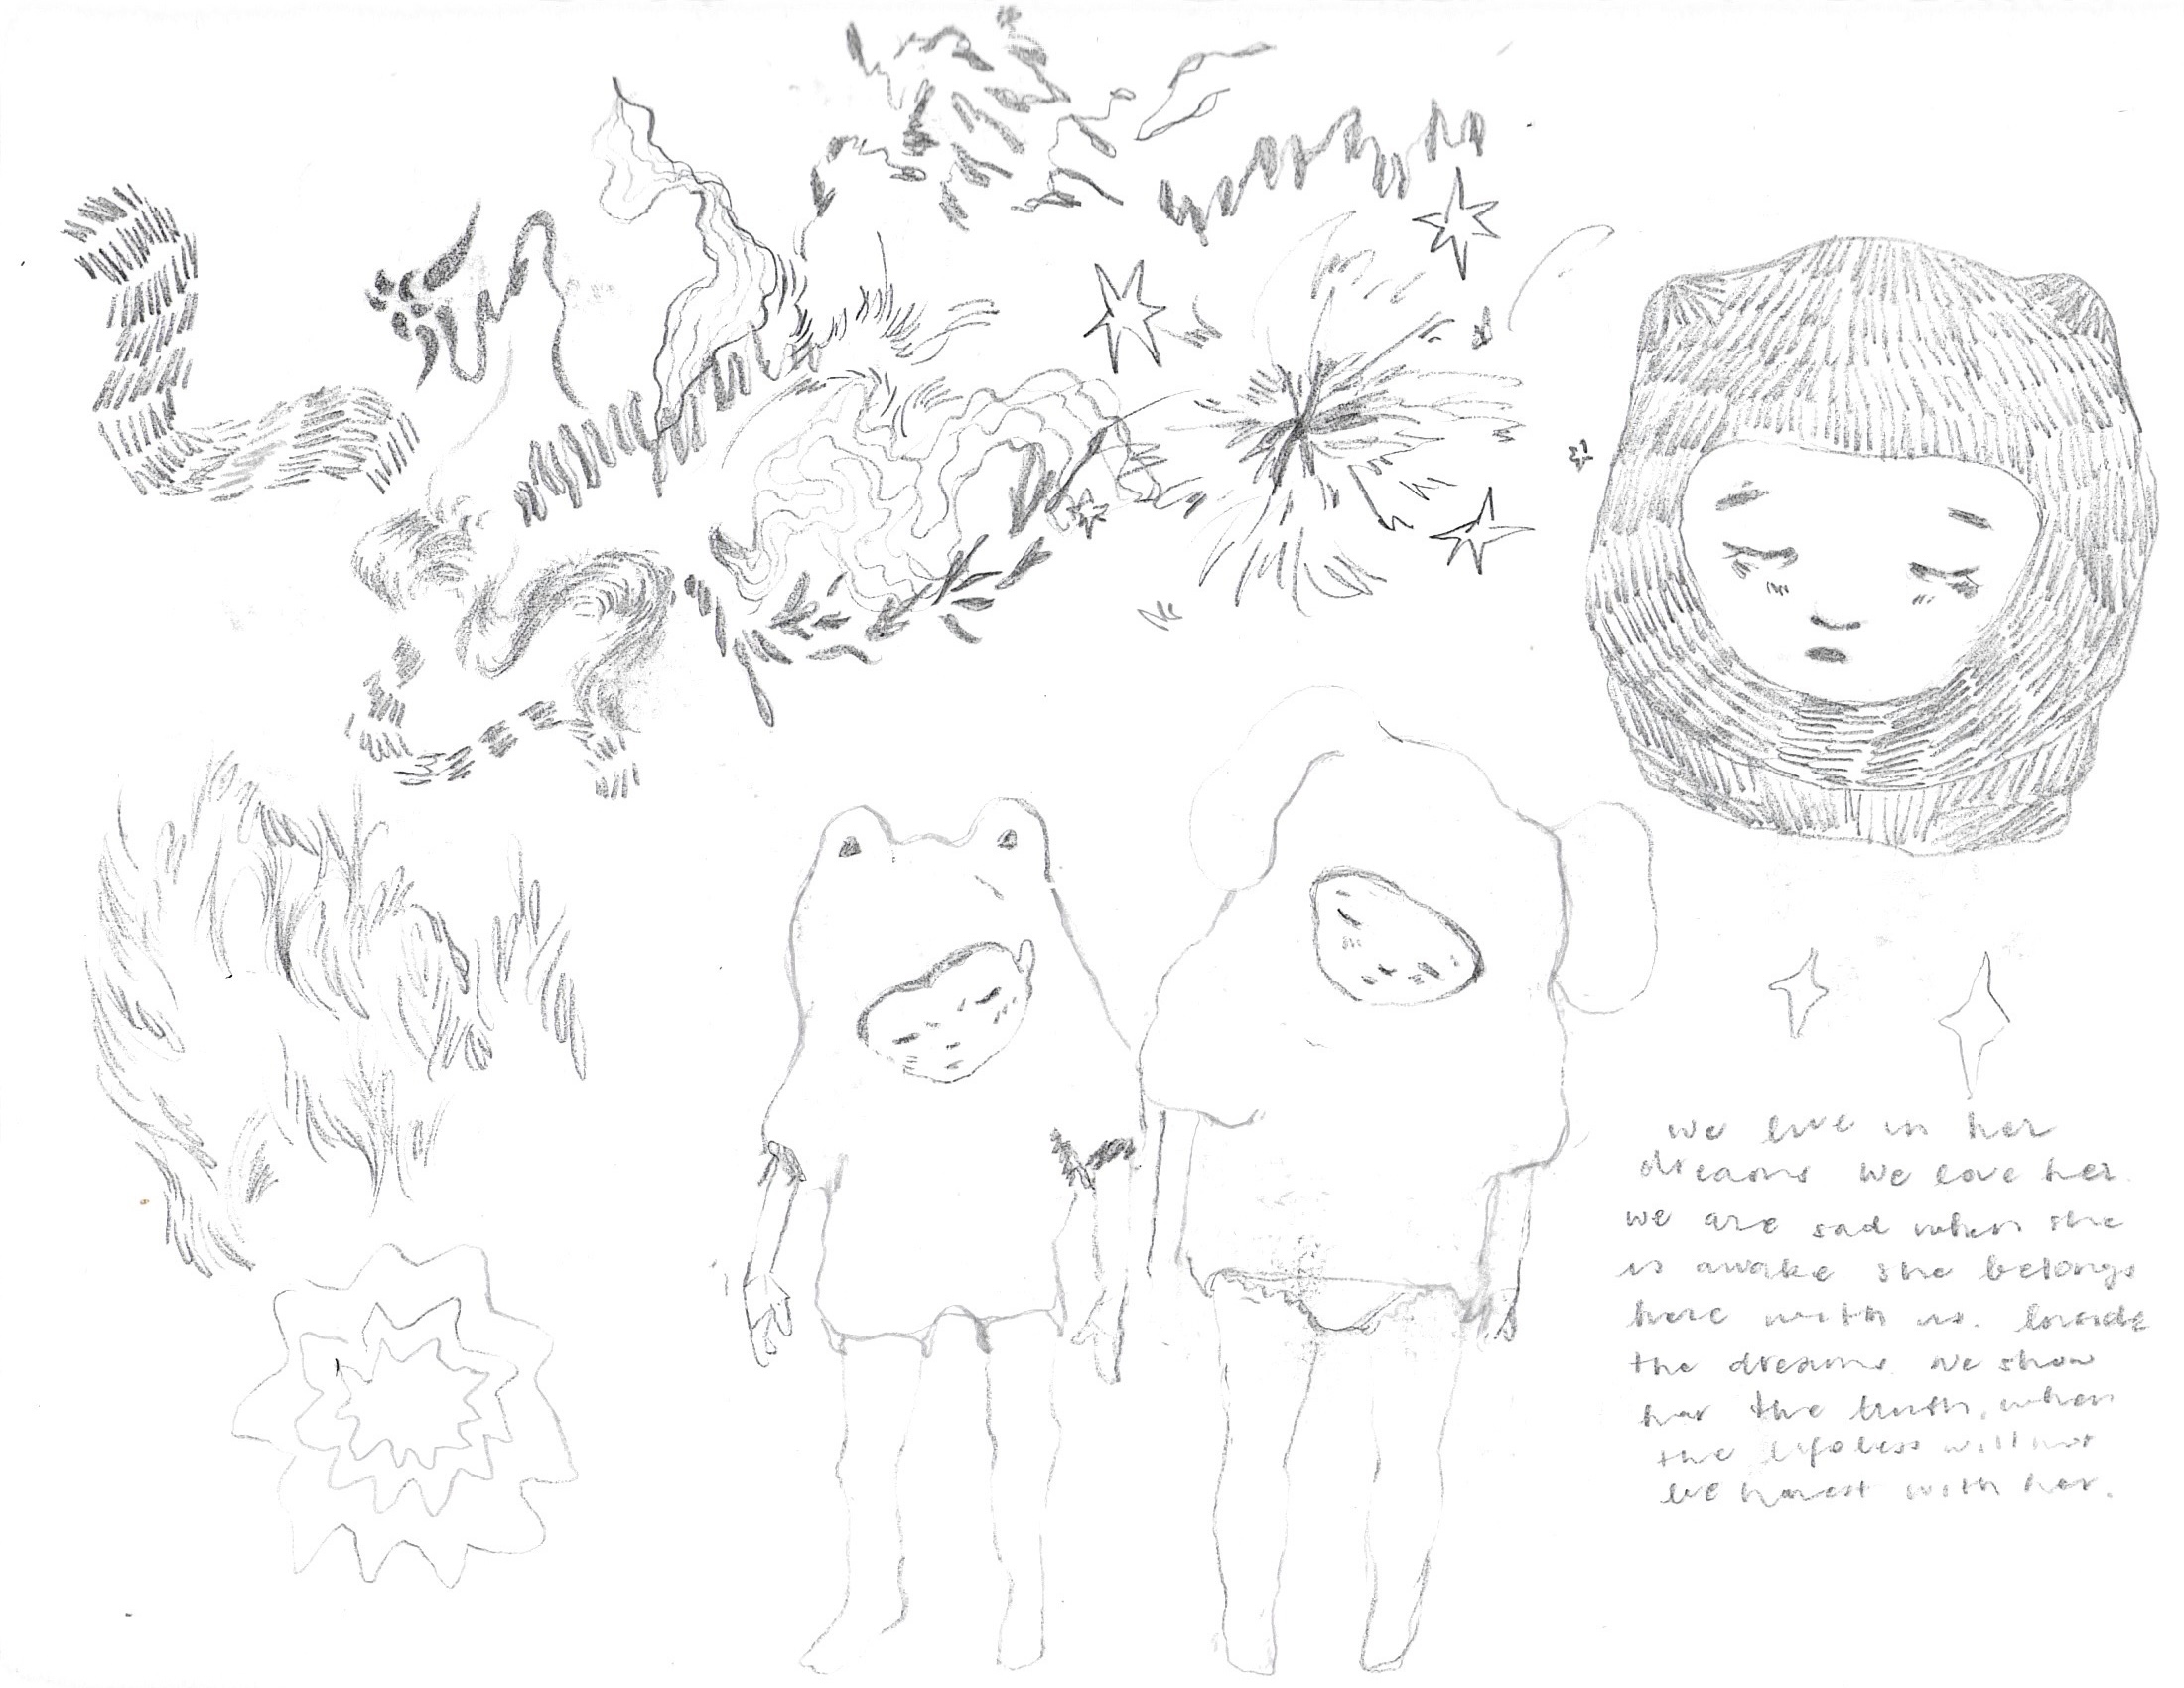 we live in her
dreams we love her.
we are sad when she
is awake she belongs
here with us. Inside
the dreams we show
her the truth, when
the lifeless will not
be honest with her.